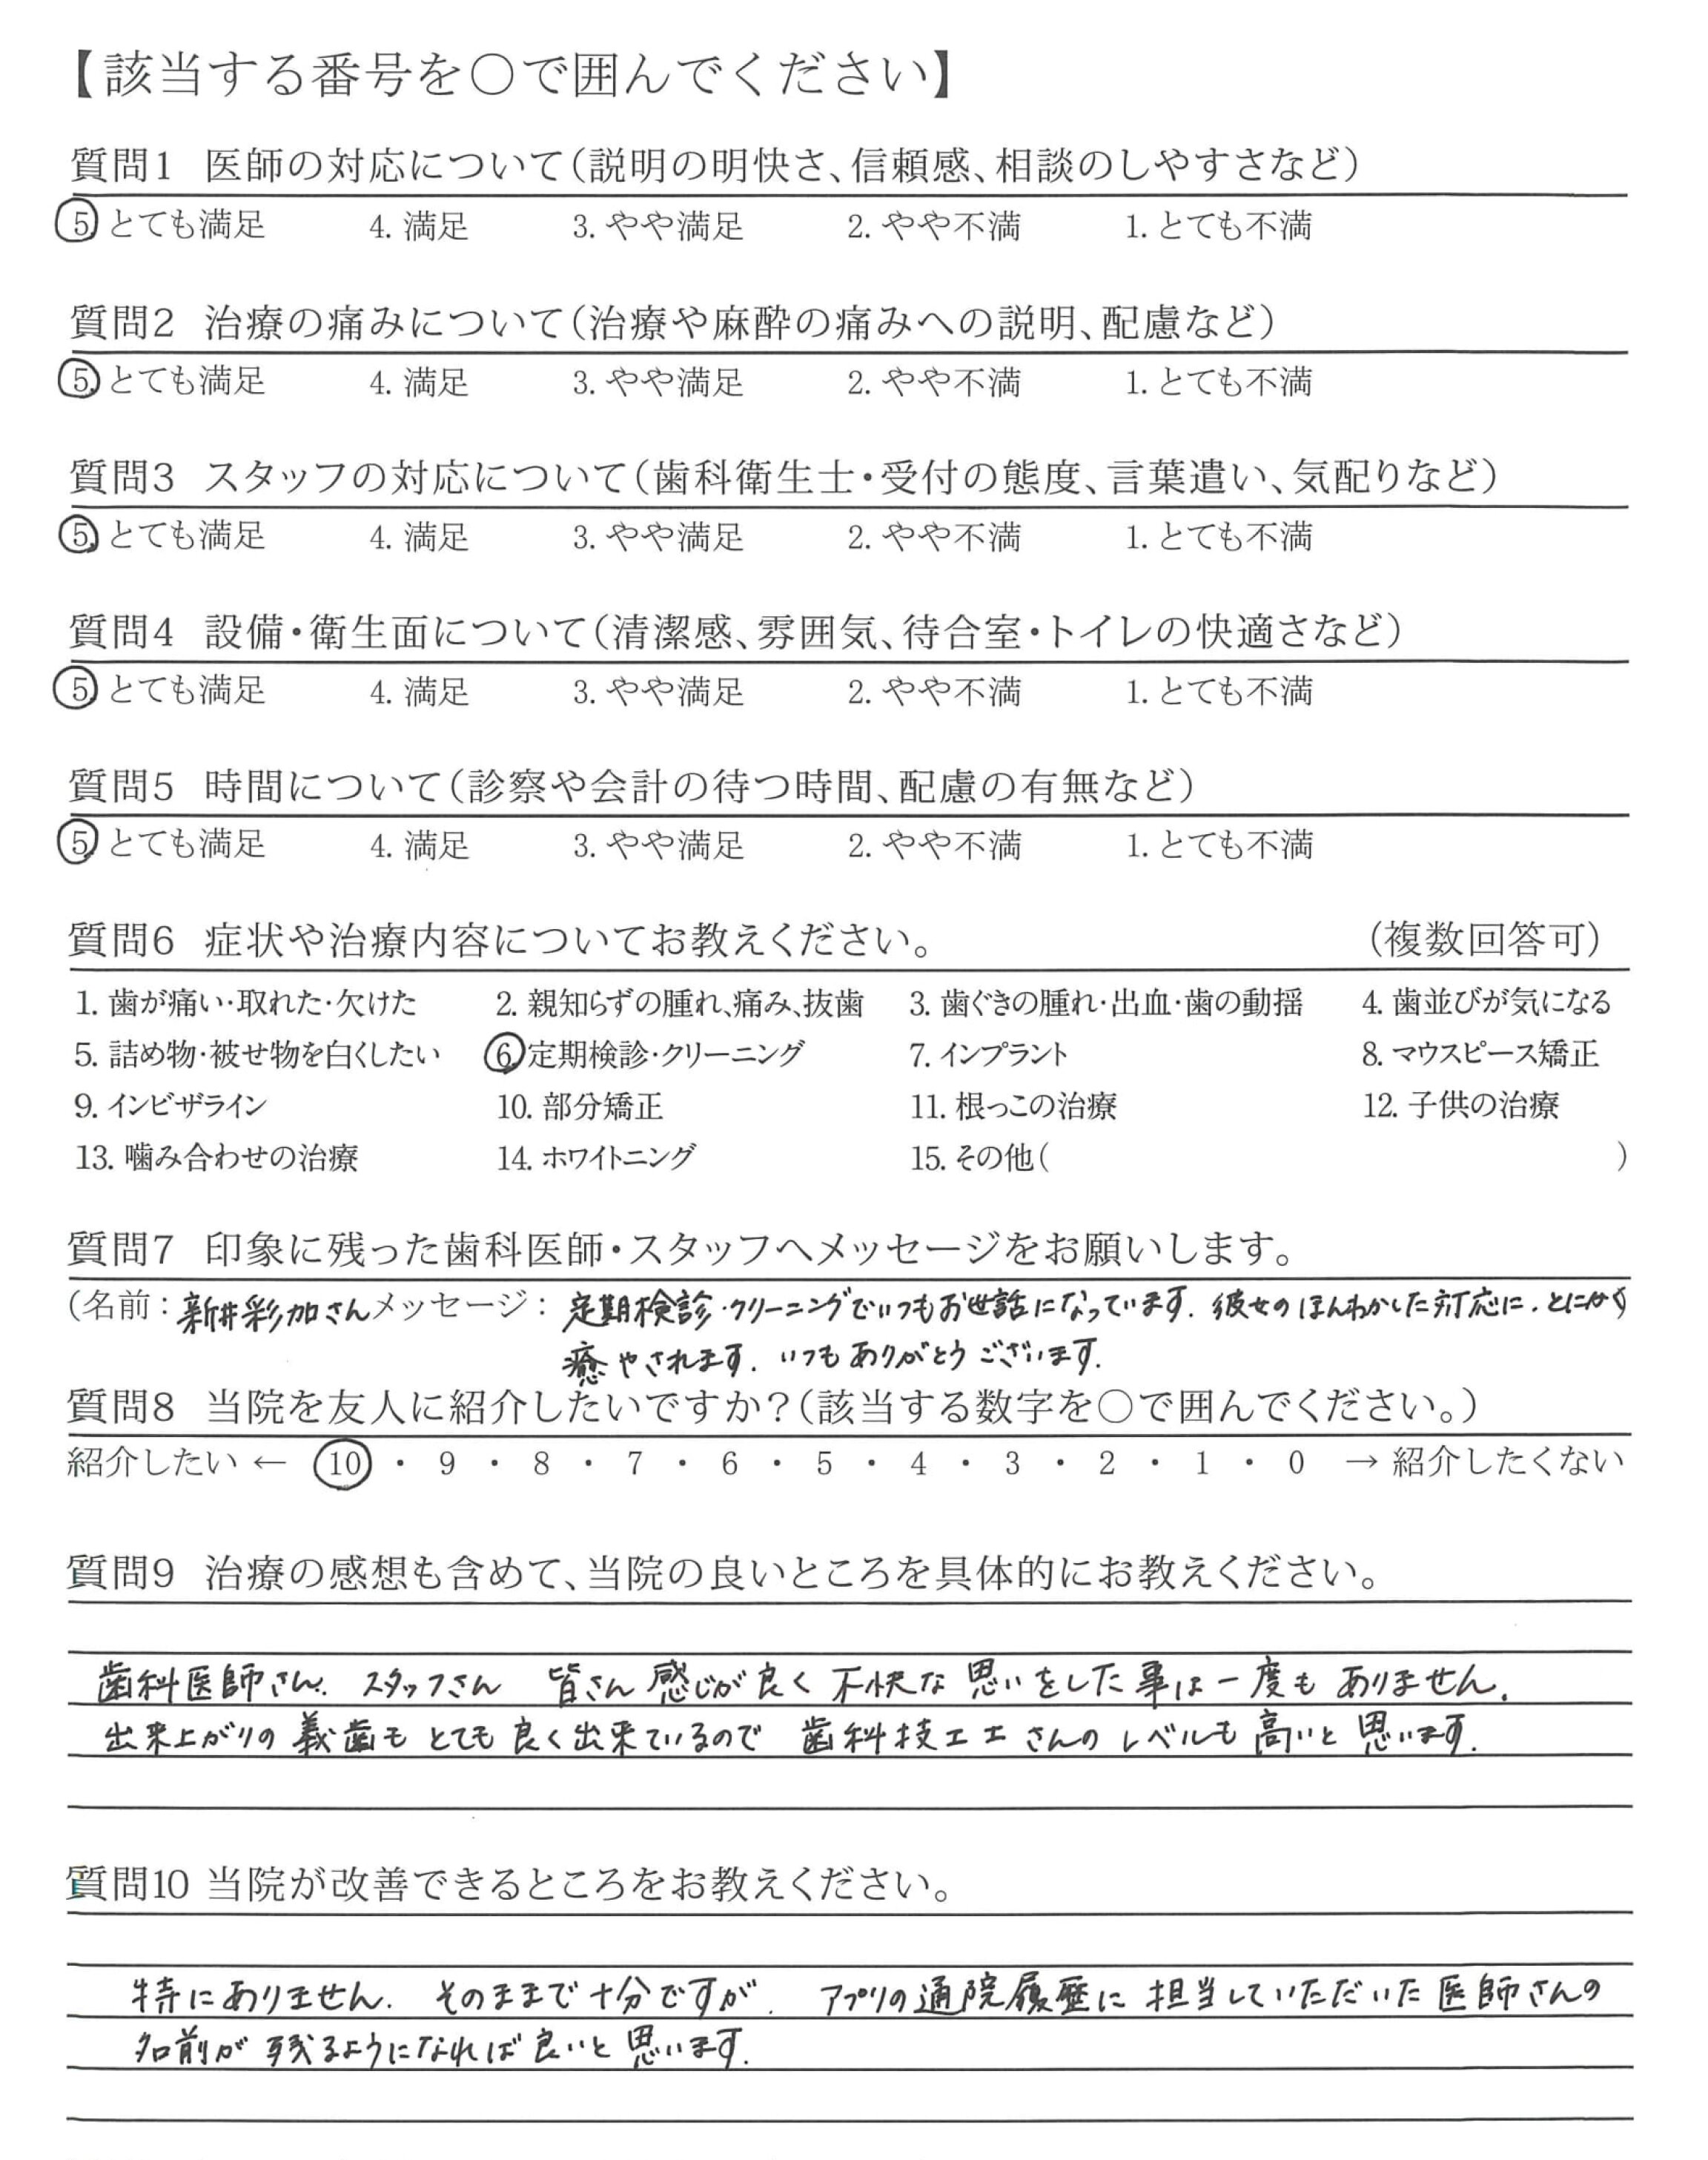 【該当する番号を〇で囲んでください】
質問1 医師の対応について(説明の明快さ、信頼感、相談のしやすさなど)
5. とても満足 4. 満足 3. やや満足 2. やや不満 1. とても不満
質問2 治療の痛みについて(治療や麻酔の痛みへの説明、配慮など)
5. とても満足 4. 満足 3. やや満足 2. やや不満 1. とても不満
質問3 スタッフの対応について(歯科衛生士・受付の態度、言葉遣い、気配りなど)
5. とても満足 4. 満足 3. やや満足 2. やや不満 1. とても不満
質問4 設備・衛生面について(清潔感、雰囲気、待合室・トイレの快適さなど)
5. とても満足 4. 満足 3. やや満足 2. やや不満 1. とても不満
質問5 時間について(診察や会計の待つ時間、配慮の有無など)
5. とても満足 4. 満足 3. やや満足 2. やや不満 1. とても不満
質問6 症状や治療内容についてお教えください。 (複数回答可)
1. 歯が痛い・取れた・欠けた 2. 親知らずの腫れ、痛み、抜歯 3. 歯ぐきの腫れ・出血・歯の動揺 4. 歯並びが気になる
5. 詰め物・被せ物を白くしたい 6. 定期検診・クリーニング 7. インプラント 8. マウスピース矯正
9. インビザライン 10. 部分矯正 11. 根っこの治療 12. 子供の治療
13. 噛み合わせの治療 14. ホワイトニング 15. その他( )
質問7 印象に残った歯科医師・スタッフへメッセージをお願いします。
(名前：新井彩加さん メッセージ：定期検診・クリーニングでいつもお世話になっています. 彼女のほんわかした対応に、とにかく)
癒やされます. いつもありがとうございます.
質問8 当院を友人に紹介したいですか?(該当する数字を〇で囲んでください。)
紹介したい ← 10 ・ 9 ・ 8 ・ 7 ・ 6 ・ 5 ・ 4 ・ 3 ・ 2 ・ 1 ・ 0 → 紹介したくない
質問9 治療の感想も含めて、当院の良いところを具体的にお教えください。
歯科医師さん、スタッフさん 皆さん感じが良く 不快な思いをした事は一度もありません.
出来上がりの義歯もとても良く出来ているので 歯科技工士さんのレベルも高いと思います.
質問10 当院が改善できるところをお教えください。
特にありません. そのままで十分ですが、アプリの通院履歴に担当していただいた医師さんの
名前が残るようになれば良いと思います.